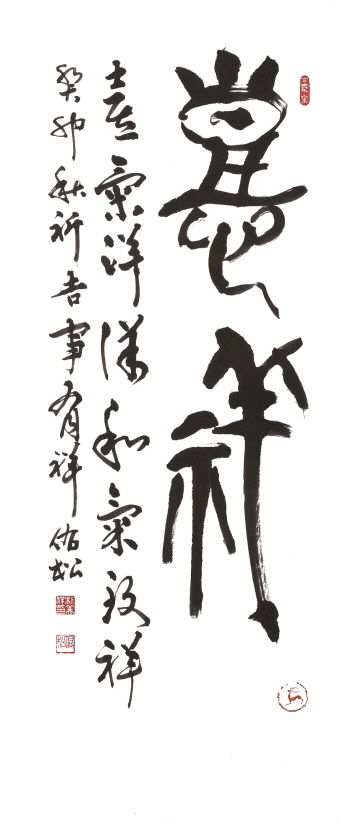 祥
喜氣洋和氣致祥
癸卯秋祈吉事有祥 佑松